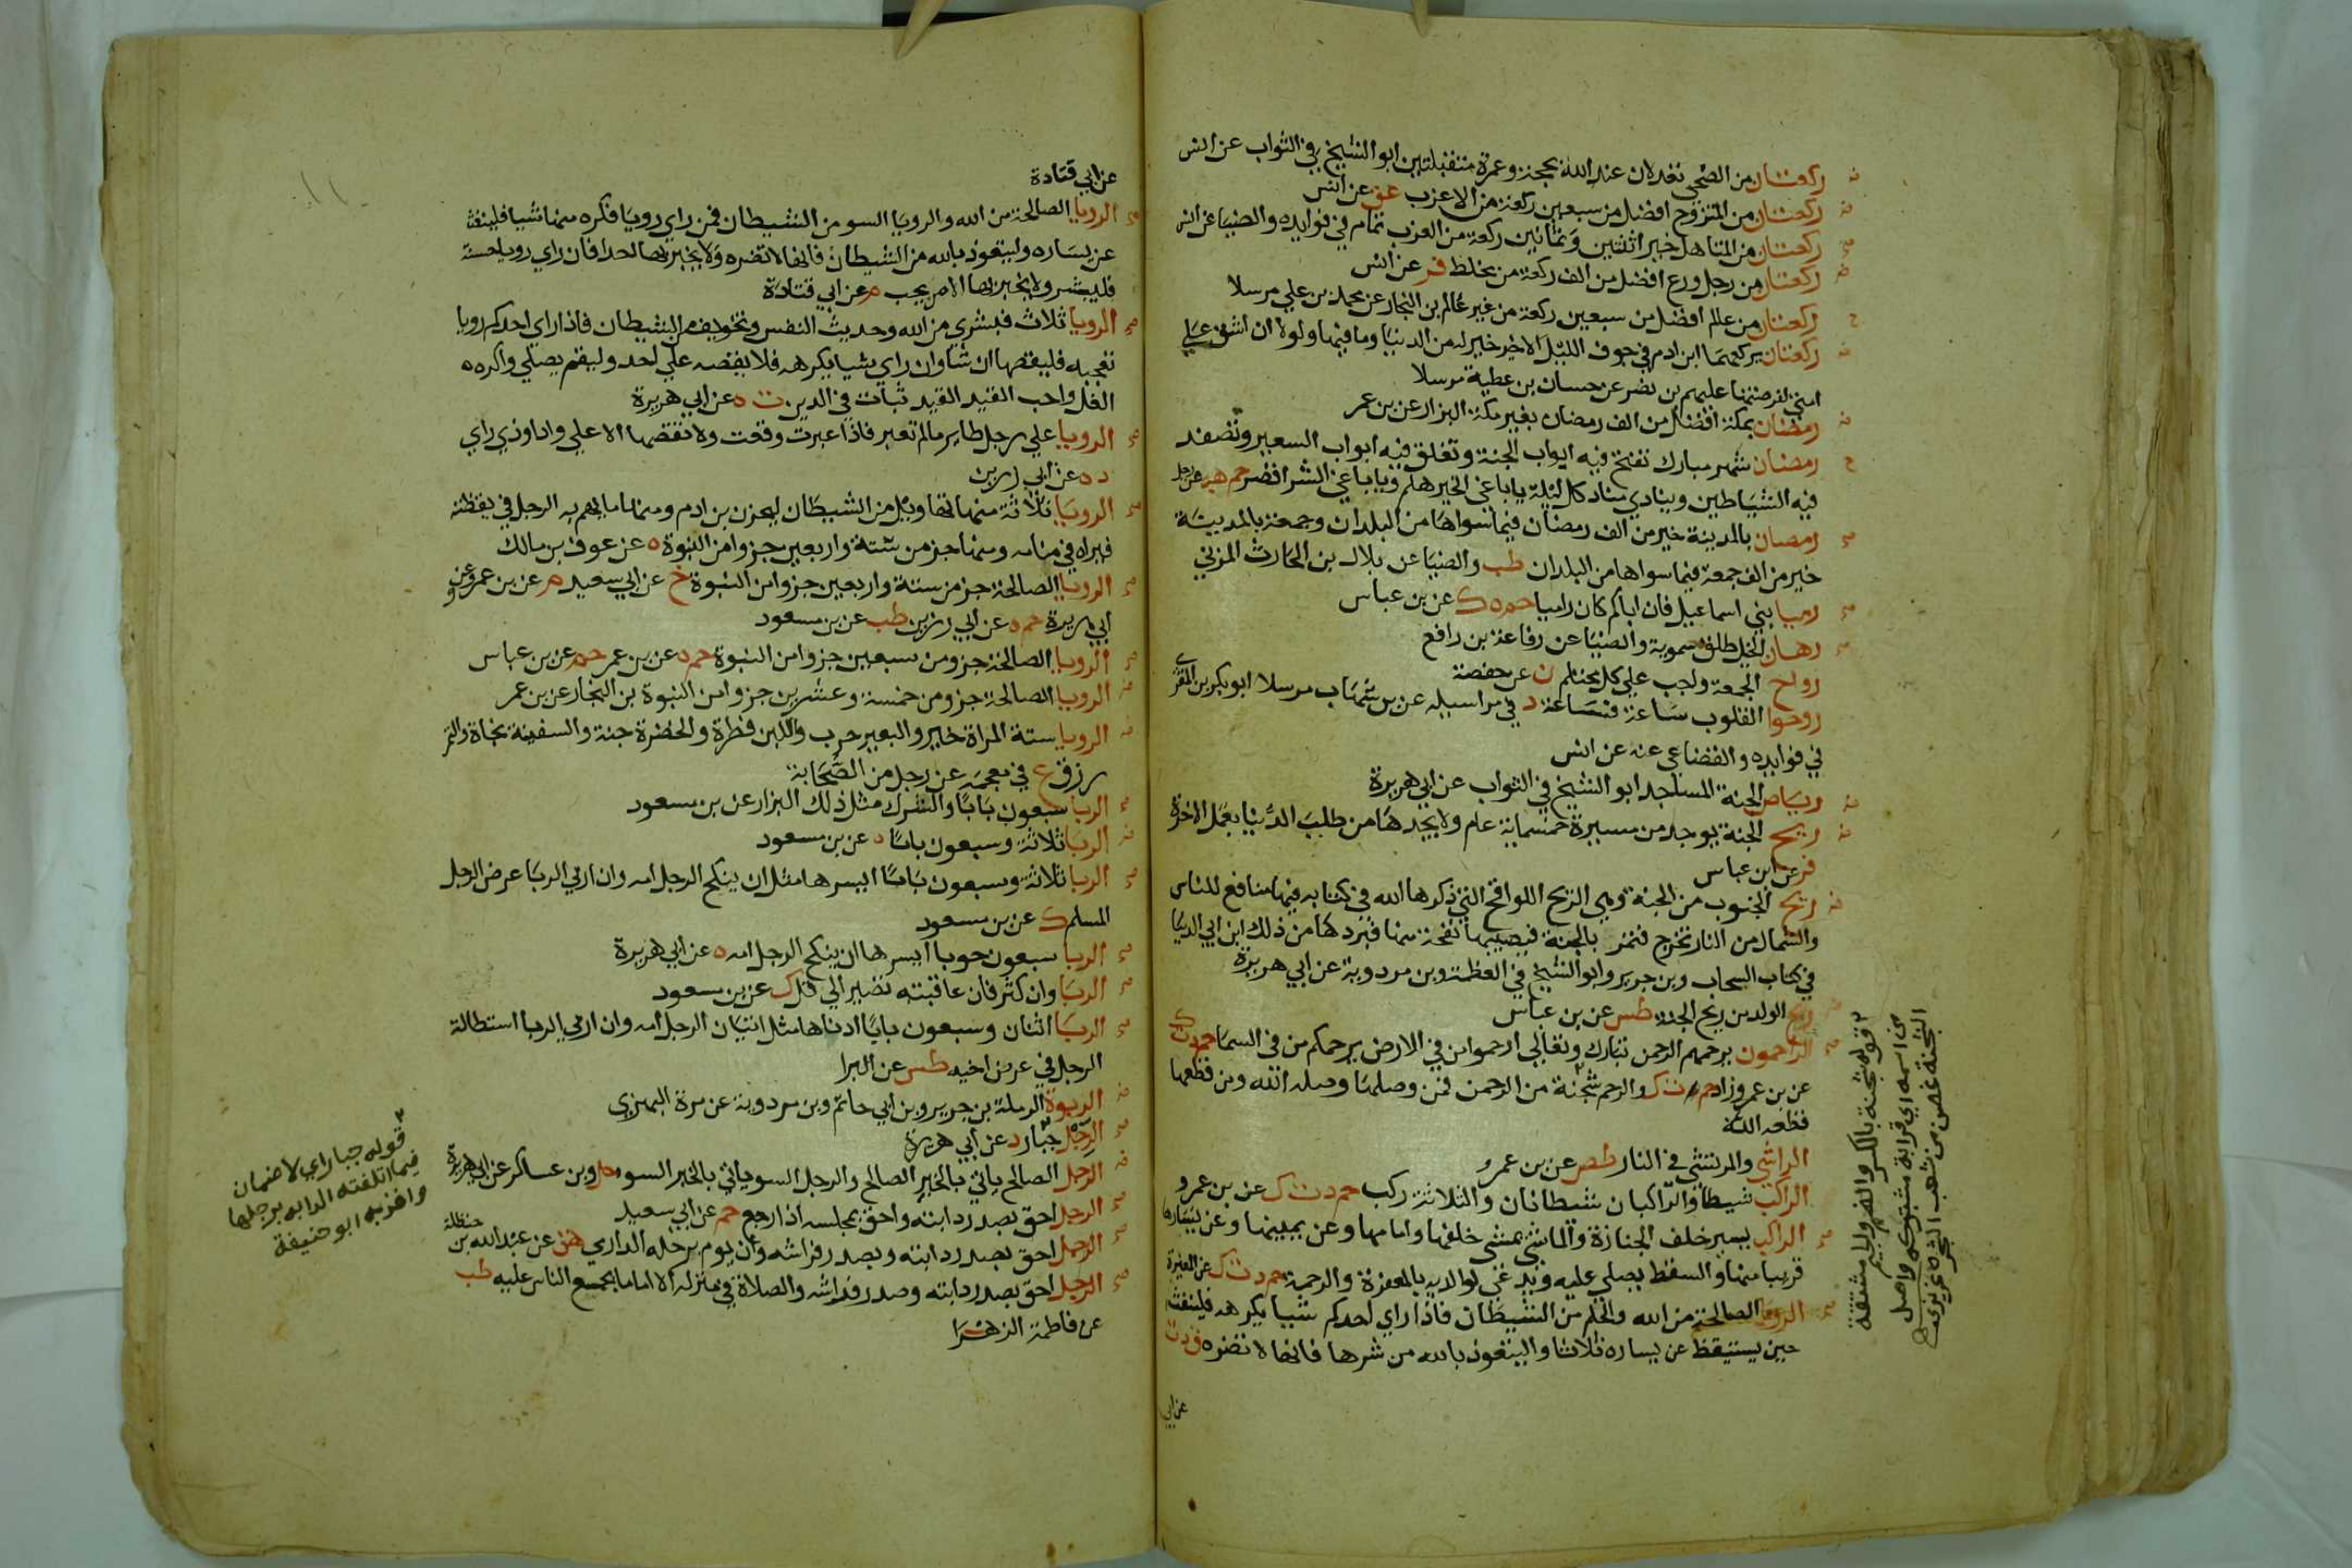 ركعتان من الضحي تعدلان عند الله بحجة وعمرة متقبلتين ابو الشيخ في الثواب عن انس
ركعتان من المتزوج افضل من سبعين ركعة من الاعزب عق عن انس
ركعتان من المتاهل خير اثنتين وثمانين ركعة من العزب تمام في فوايده والضيا عن انس
ركعتان من رجل ورع افضل من الف ركعة من مخلط فر عن انس
ركعتان من عالم افضل من سبعين ركعة من غير عالم بن النجار عن محمد بن علي مرسلا
ركعتان يركعهما ابن ادم في جوف الليل الاخير خير له من الدنيا وما فيها ولولا ان اشق علي
امتي لفرضتهما عليهم بن نصر عن حسان بن عطية مرسلا
رمضان بمكة افضل من الف رمضان بغير مكة البزار عن بن عمر
رمضان شهر مبارك تفتح فيه ابواب الجنة وتغلق فيه ابواب السعير وتصفد
فيه الشياطين وينادي مناد كل ليلة يا باغي الخير هلم ويا باغي الشر اقصر حم هب عن رجل
رمضان بالمدينة خير من الف رمضان فيما سواها من البلدان وجمعة بالمدينة
خير من الف جمعة فيما سواها من البلدان طب والضيا عن بلال بن الحارث المزني
رميا بني اسماعيل فان اباكم كان راميا حم ه ك عن بن عباس
رهان الخيل طلق سموية والضيا عن رفاعة بن رافع
رواح الجمعة واجب علي كل محتلم ن عن حفصة
روحوا القلوب ساعة فساعة د في مراسيله عن بن شهاب مرسلا ابو بكر بن المقري
في فوايده والقضاعي عنه عن انس
رياض الجنة المساجد ابو الشيخ في الثواب عن ابي هريرة
ريح الجنة يوجد من مسيرة خمسماية عام ولا يجدها من طلب الدنيا بعمل الاخرة
فر عن ابن عباس
ريح الجنوب من الجنة وهي الريح اللواقح التي ذكرها الله في كتابه فيها منافع للناس
والشمال من النار تخرج فتمر بالجنة فيصيبها نفحة منها فبردها من ذلك ابن ابي الدنيا
في كتاب السحاب وبن جرير وابو الشيخ في العظمة وبن مردوية عن ابي هريرة
ريح الولد من ريح الجنة طس عن بن عباس
الراحمون يرحمهم الرحمن تبارك وتعالي ارحموا من في الارض يرحمكم من في السما حم د ت ك
عن بن عمرو زاد حم ت ك والرحم شجنة من الرحمن فمن وصلها وصله الله ومن قطعها
قطعه الله
الراشي والمرتشي في النار طص عن بن عمرو
الراكب شيطان والراكبان شيطانان والثلاثة ركب حم د ت ك عن بن عمرو
الراكب يسير خلف الجنازة والماشي يمشي خلفها وامامها وعن يمينها وعن يسارها
قريبا منها والسقط يصلي عليه ويدعي لوالديه بالمغفرة والرحمة حم د ت ك عن المغيرة
الرويا الصالحة من الله والحلم من الشيطان فاذا راي احدكم شيا يكرهه فلينفث
حين يستيقظ عن يساره ثلاثا وليتعوذ بالله من شرها فانها لا تضره ق د ت
عن ابي
قوله شجنة بالكسر والضم والجيم مشتقة
من اسمه اي قرابة مشتبكة واصل
الشجنة غصن من غصن الشجرة عزيزي
عن ابي قتادة
الرويا الصالحة من الله والرويا السو من الشيطان فمن راي رويا فكره منها شيا فلينفث
عن يساره وليتعوذ بالله من الشيطان فانها لا تضره ولا يخبر بها احدا فان راي رويا حسنة
فليبشر ولا يخبر بها الا من يحب م عن ابي قتادة
الرويا ثلاث فبشري من الله وحديث النفس وتخويف من الشيطان فاذا راي احدكم رويا
تعجبه فليقصها ان شا وان راي شيا يكرهه فلا يقصه علي احد وليقم يصلي واكره
الغل واحب القيد القيد ثبات في الدين ت ه عن ابي هريرة
الرويا علي رجل طاير مالم تعبر فاذا عبرت وقعت ولا تقصها الا علي واد او ذي راي
د ه عن ابي رزين
الرويا ثلاثة منها تهاويل من الشيطان ليحزن بن ادم ومنها ما يهم به الرجل في يقظته
فيراه في منامه ومنها جز من ستة واربعين جزوا من النبوة ه عن عوف بن مالك
الرويا الصالحة جز من ستة واربعين جزوا من النبوة خ عن ابي سعيد م عن بن عمرو وعن
ابي هريرة حم ه عن ابي رزين طب عن بن مسعود
الرويا الصالحة جزو من سبعين جزوا من النبوة حم د عن بن عمر حم عن بن عباس
الرويا الصالحة جزو من خمسة وعشرين جزوا من النبوة بن النجار عن بن عمر
الرويا ستة المراة خير والبعير حرب واللبن فطرة والخضرة جنة والسفينة نجاة والتمر
رزق ع في معجمه عن رجل من الصحابة
الربا سبعون بابا والشرك مثل ذلك البزار عن بن مسعود
الربا ثلاثة وسبعون بابا ه عن بن مسعود
الربا ثلاثة وسبعون بابا ايسرها مثل ان ينكح الرجل امه وان اربي الربا عرض الرجل
المسلم ك عن بن مسعود
الربا سبعون حوبا ايسرها ان ينكح الرجل امه ه عن ابي هريرة
الربا وان كثر فان عاقبته تصير الي قل ك عن بن مسعود
الربا اثنان وسبعون بابا ادناها مثل اتيان الرجل امه وان اربي الربا استطالة
الرجل في عرض اخيه طس عن البرا
الربوة الرملة بن جرير وبن ابي حاتم وبن مردوية عن مرة البهزي
الرجل جبار د عن ابي هريرة
الرجل الصالح ياتي بالخبر الصالح والرجل السو ياتي بالخبر السو حل وبن عساكر عن ابي هريرة
الرجل احق بصدر دابته واحق بمجلسه اذا رجع حم عن ابي سعيد
الرجل احق بصدر دابته وبصدر فراشه وان يوم برحله الداري هق عن عبد الله بن حنظلة
الرجل احق بصدر دابته وصدر فراشه والصلاة في منزله الا اماما يجمع الناس عليه طب
عن فاطمة الزهرا
قوله جبار اي لا ضمان
فيما اتلفته الدابه برجلها
واخذ به ابو حنيفة